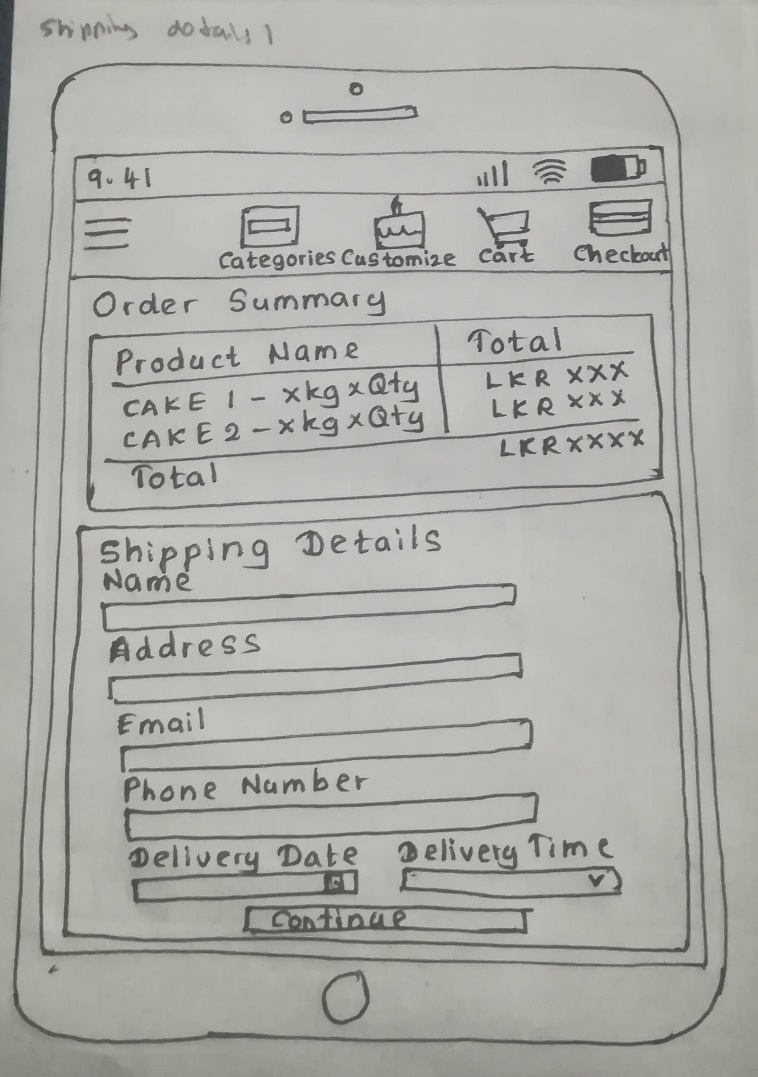 Shipping details 1
9.41
Categories Customize Cart Checkout
Order Summary
Product Name Total
CAKE 1 - xkg x Qty LKR XXX
CAKE 2 - xkg x Qty LKR XXX
Total LKR XXXX
Shipping Details
Name
Address
Email
Phone Number
Delivery Date Delivery Time
Continue